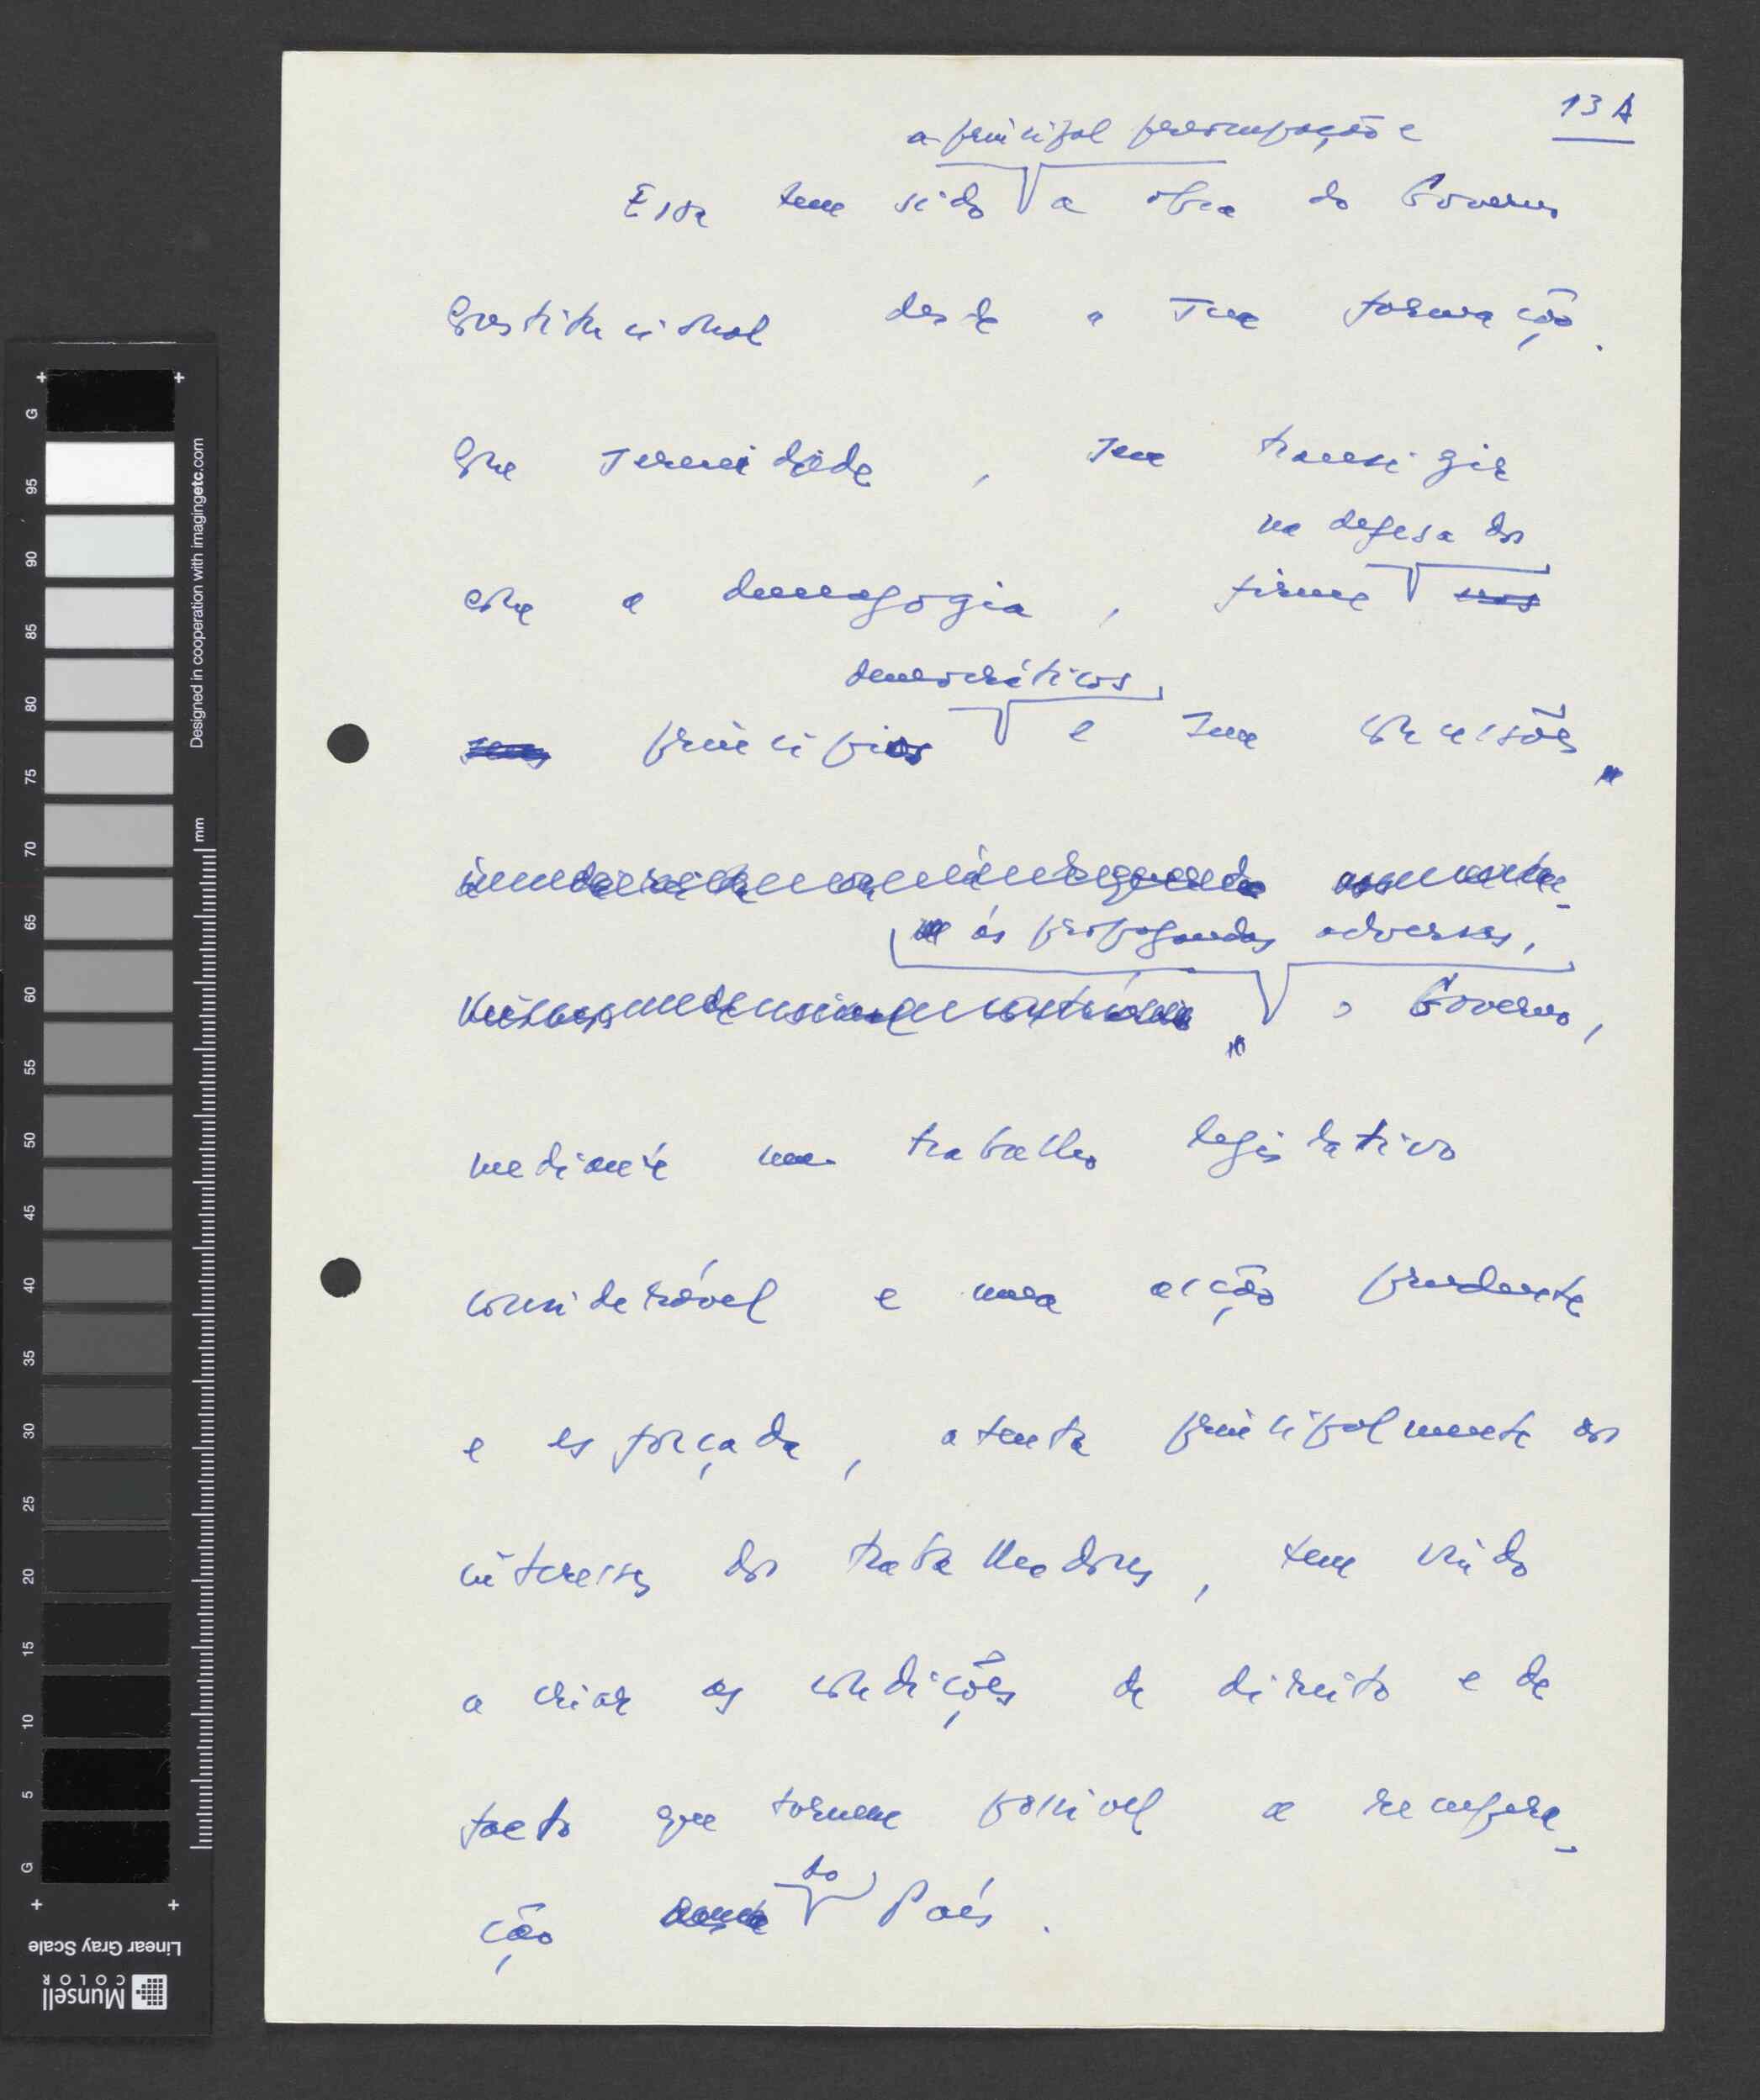 13 A
a principal preocupação e
Essa tem sido a obra do Governo
Constitucional desde a sua formação.
Com serenidade, sem transigir
na defesa dos
com a demagogia, firme nos
democráticos,
seus princípios e sem concessões
às propagandas adversas,
o Governo,
mediante um trabalho legislativo
considerável e uma acção prudente
e esforçada, atenta principalmente aos
interesses dos trabalhadores, tem vindo
a criar as condições de direito e de
facto que tornem possível a recupera-
do
ção País.
G
95
90
85
80
75
70
65
60
55
50
45
40
35
30
25
20
15
10
5
G
Designed in cooperation with imagingetc.com
mm
Linear Gray Scale
Munsell
COLOR